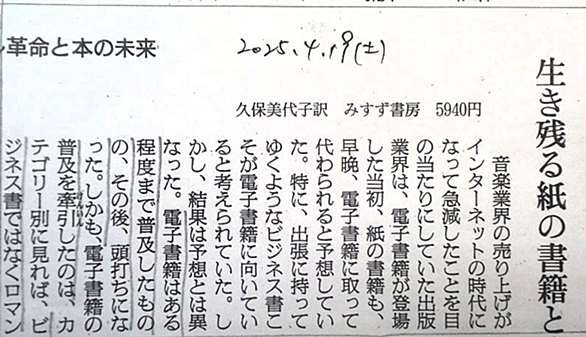 革命と本の未来
2025.4.19(土)
久保美代子訳　みすず書房　5940円
生き残る紙の書籍と
音楽業界の売り上げが
インターネットの時代に
なって急減したことを目
の当たりにしていた出版
業界は、電子書籍が登場
した当初、紙の書籍も、
早晩、電子書籍に取って
代わられると予想してい
た。特に、出張に持って
ゆくようなビジネス書こ
そが電子書籍に向いてい
ると考えられていた。し
かし、結果は予想とは異
なった。電子書籍はある
程度まで普及したもの
の、その後、頭打ちにな
った。しかも、電子書籍の
普及を牽引したのは、カ
テゴリー別に見れば、ビ
ジネス書ではなくロマン